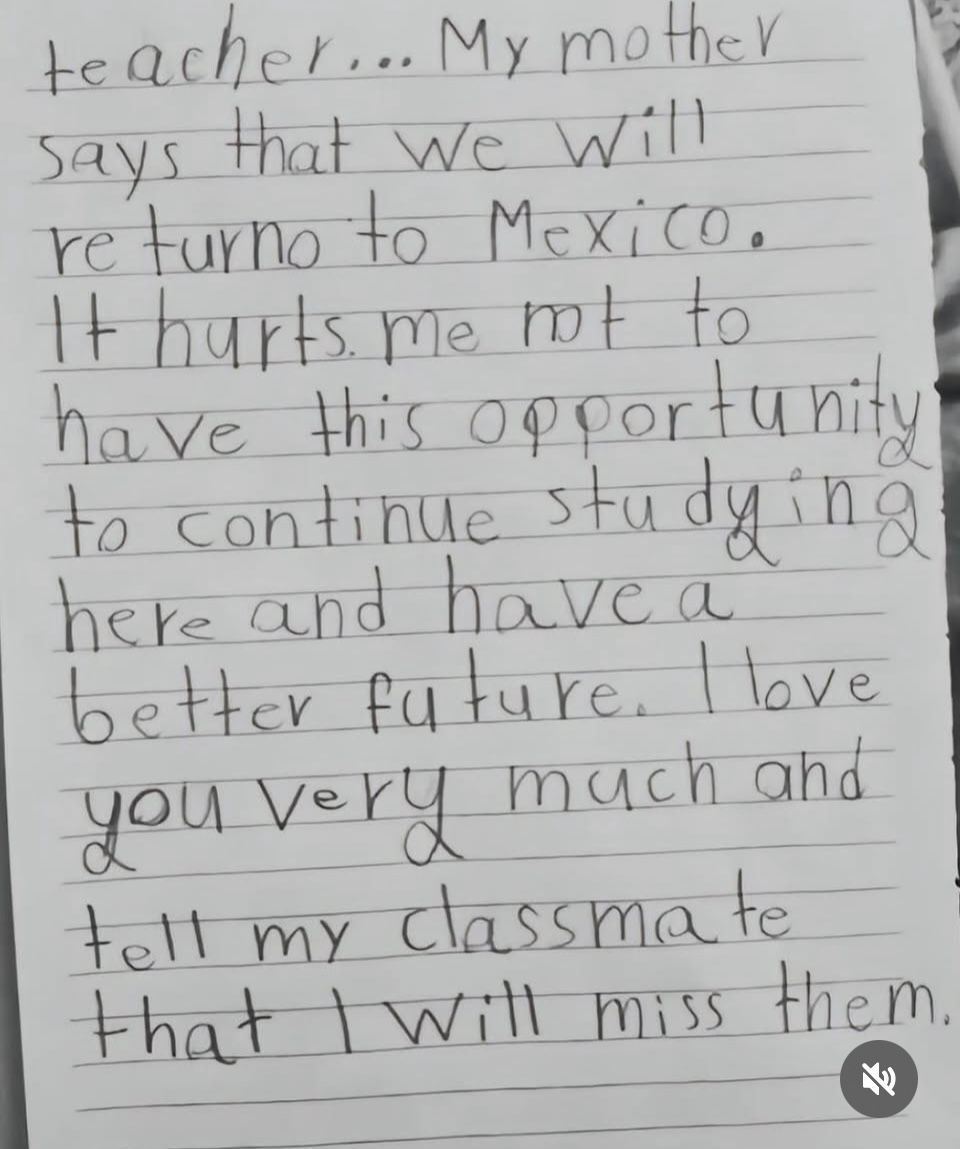 teacher... My mother
says that we will
returno to Mexico.
It hurts. me not to
have this opportunity
to continue studying
here and have a
better future. I love
you very much and
tell my classmate
that I will miss them.